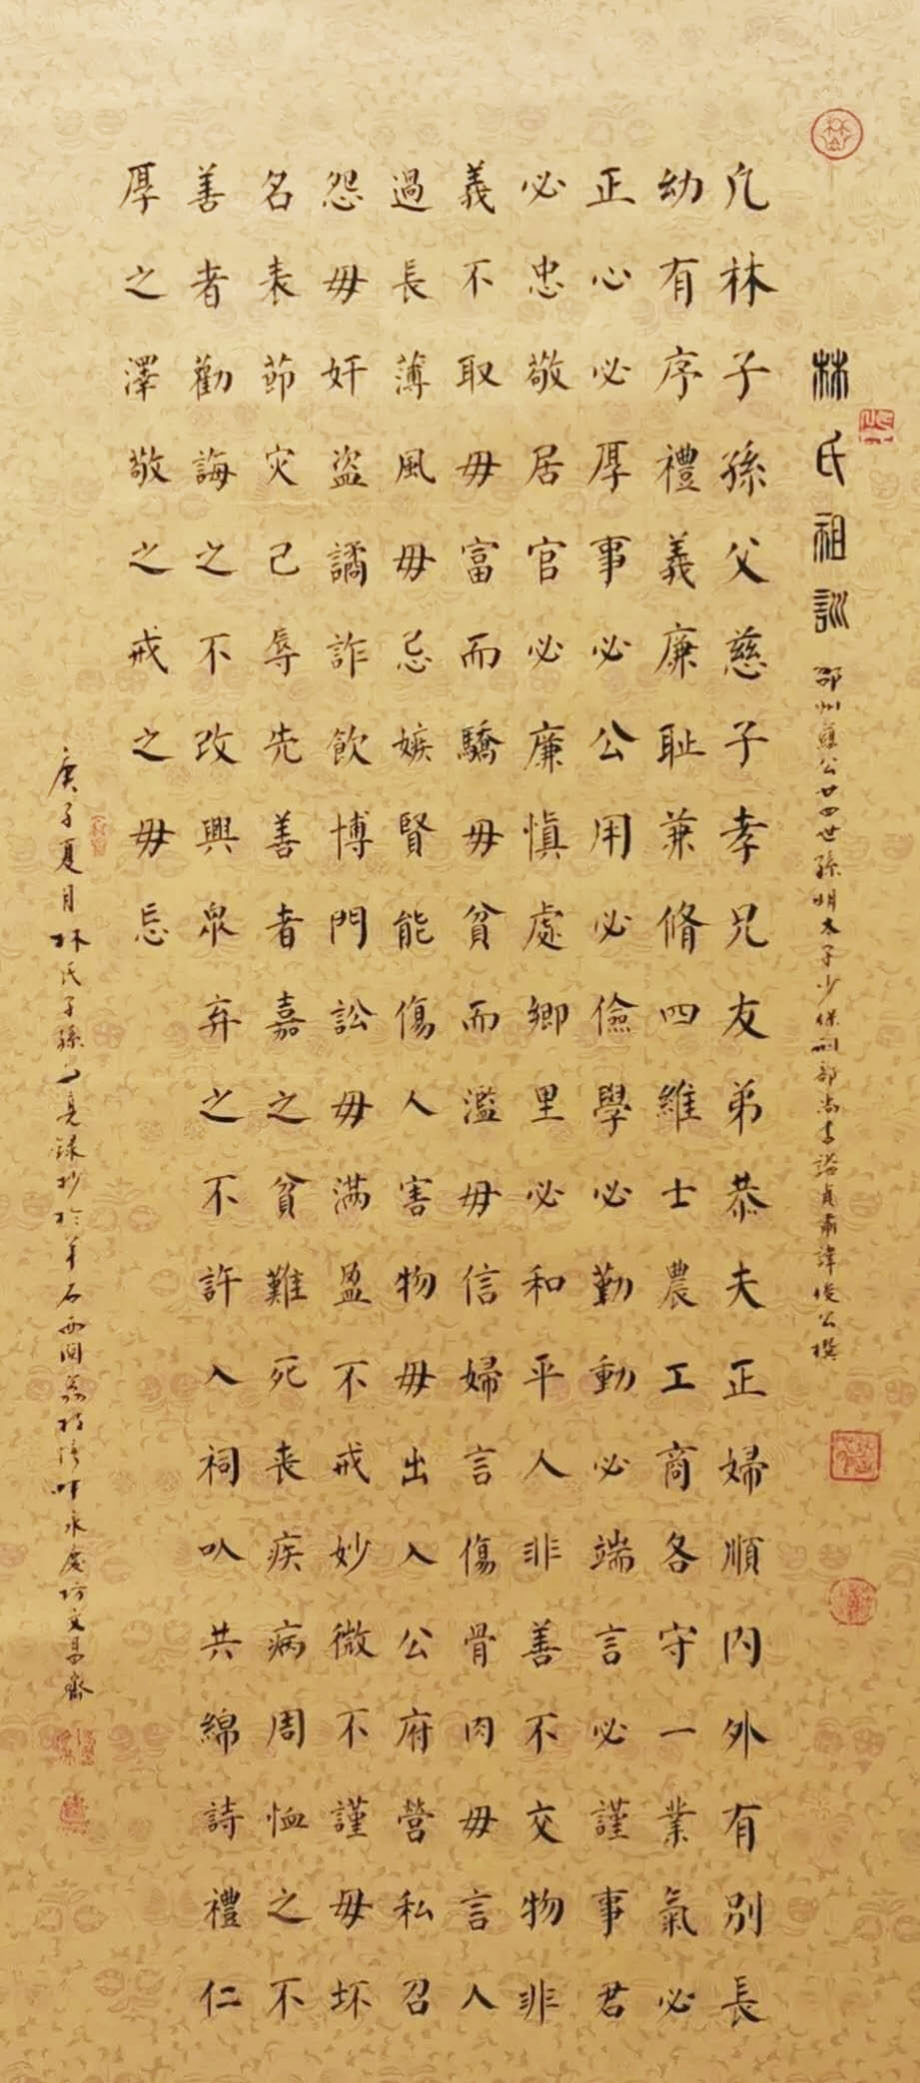 林氏祖訓 邵州蘊公廿四世孫明太子少保刑部尚書諡貞肅諱俊公撰
凡林子孫父慈子孝兄友弟恭夫正婦順內外有別長
幼有序禮義廉耻兼脩四維士農工商各守一業氣必
正心必厚事必公用必儉學必勤動必端言必謹事君
必忠敬居官必廉慎處鄉里必和平人非善不交物非
義不取毋富而驕毋貧而濫毋信婦言傷骨肉毋言人
過長薄風毋忌嫉賢能傷人害物毋出入公府營私召
怨毋奸盜譎詐飲博鬥訟毋满盈不戒妙微不謹毋坏
名表節灾己辱先善者嘉之貧難死丧疾病周恤之不
善者勸誨之不改興眾弃之不許入祠以共綿詩禮仁
厚之澤敬之戒之毋忘
庚子夏月林氏子孫 錄抄於 石西回荔枝 永慶坊文昌齋